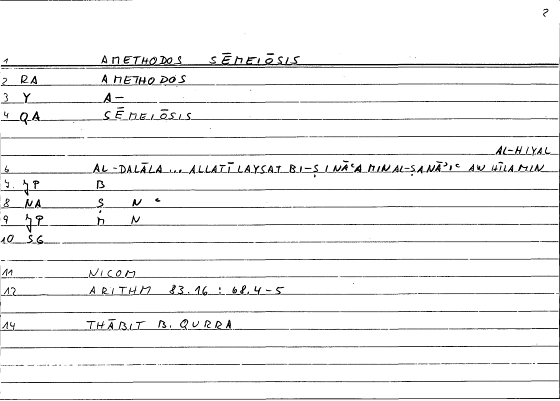 2
1 AMETHODOS SĒMEIŌSIS
2 RA AMETHODOS
3 Y A–
4 QA SĒMEIŌSIS
AL-HIYAL
6 AL-DALĀLA ... ALLATĪ LAYSAT BI-ṢINĀʿA MIN AL-ṢANĀʾIʿ AW ḤĪLA MIN
7 JP B
8 NA Ṣ N ʿ
9 JP M N
10 SG
11 NICOM
12 ARITHM 83.16 : 68.4-5
14 THĀBIT B. QURRA